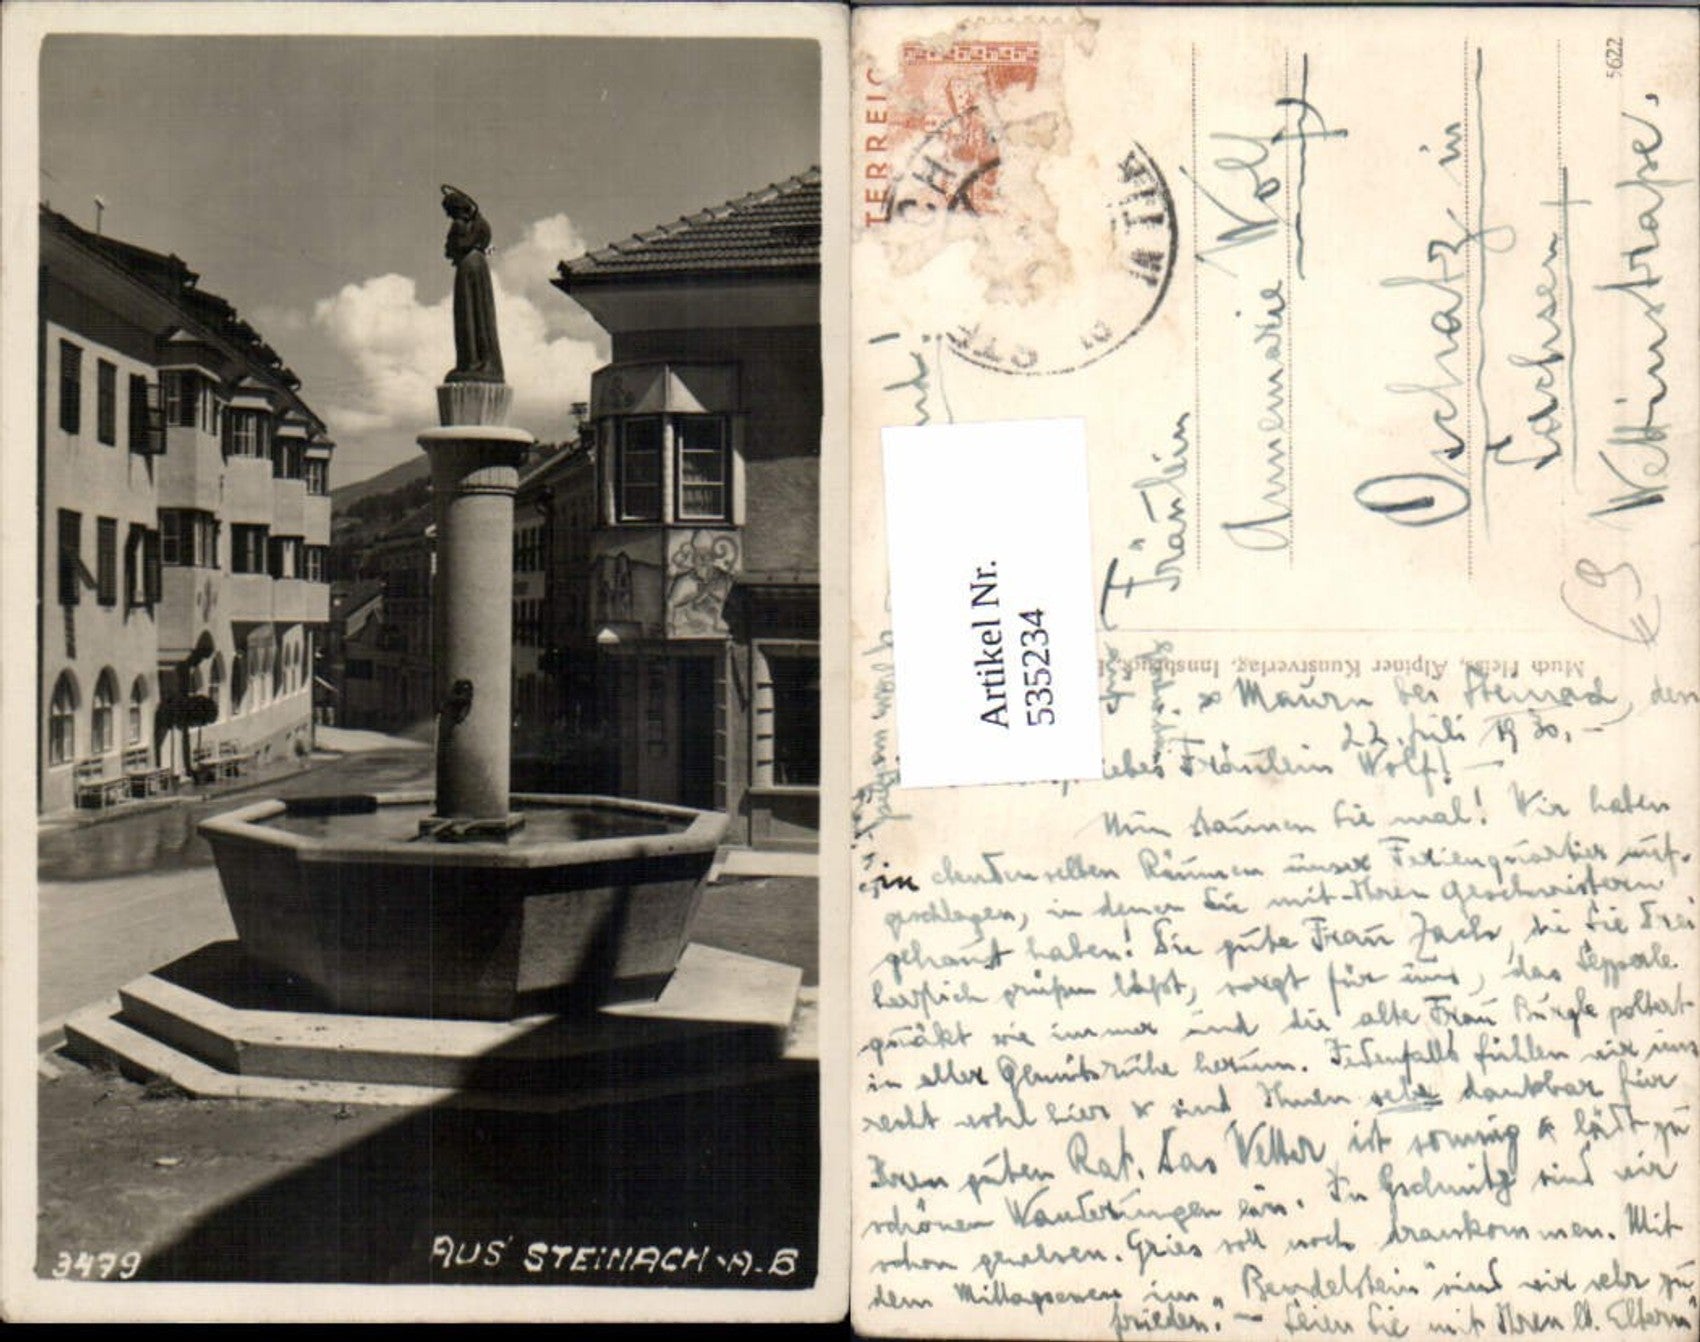 3479
AUS STEINACH A. B
TERREIC
CH
WITTM
5622
Fräulein
Annemarie Wolf
Oschatz in
Sachsen
Wettinstraße.
Artikel Nr.
535234
Much Heiß, Alpiner Kunstverlag, Innsbruck
Mauern bei Steinach, den
22. Juli 1930.-
liebes Fräulein Wolf! -
Nun staunen Sie mal! Wir haben
in denselben Räumen unser Ferienquartier auf-
geschlagen, in denen Sie mit Ihren Geschwistern
gehaust haben! Die gute Frau, die Sie
herzlich grüßen läßt, sorgt für uns, das Sepperle
quäkt wie immer und die alte Frau poltert
in aller Gemütsruhe herum. Jedenfalls fühlen wir uns
recht wohl hier & sind Ihnen sehr dankbar für
Ihren guten Rat. Das Wetter ist sonnig & lädt zu
schönen Wanderungen ein. In Gschnitz sind wir
schon gewesen. Gries soll noch drankommen. Mit
dem Mittagessen im „Bendelstein" sind wir sehr zu
frieden. - Seien Sie mit Ihren lb. Eltern